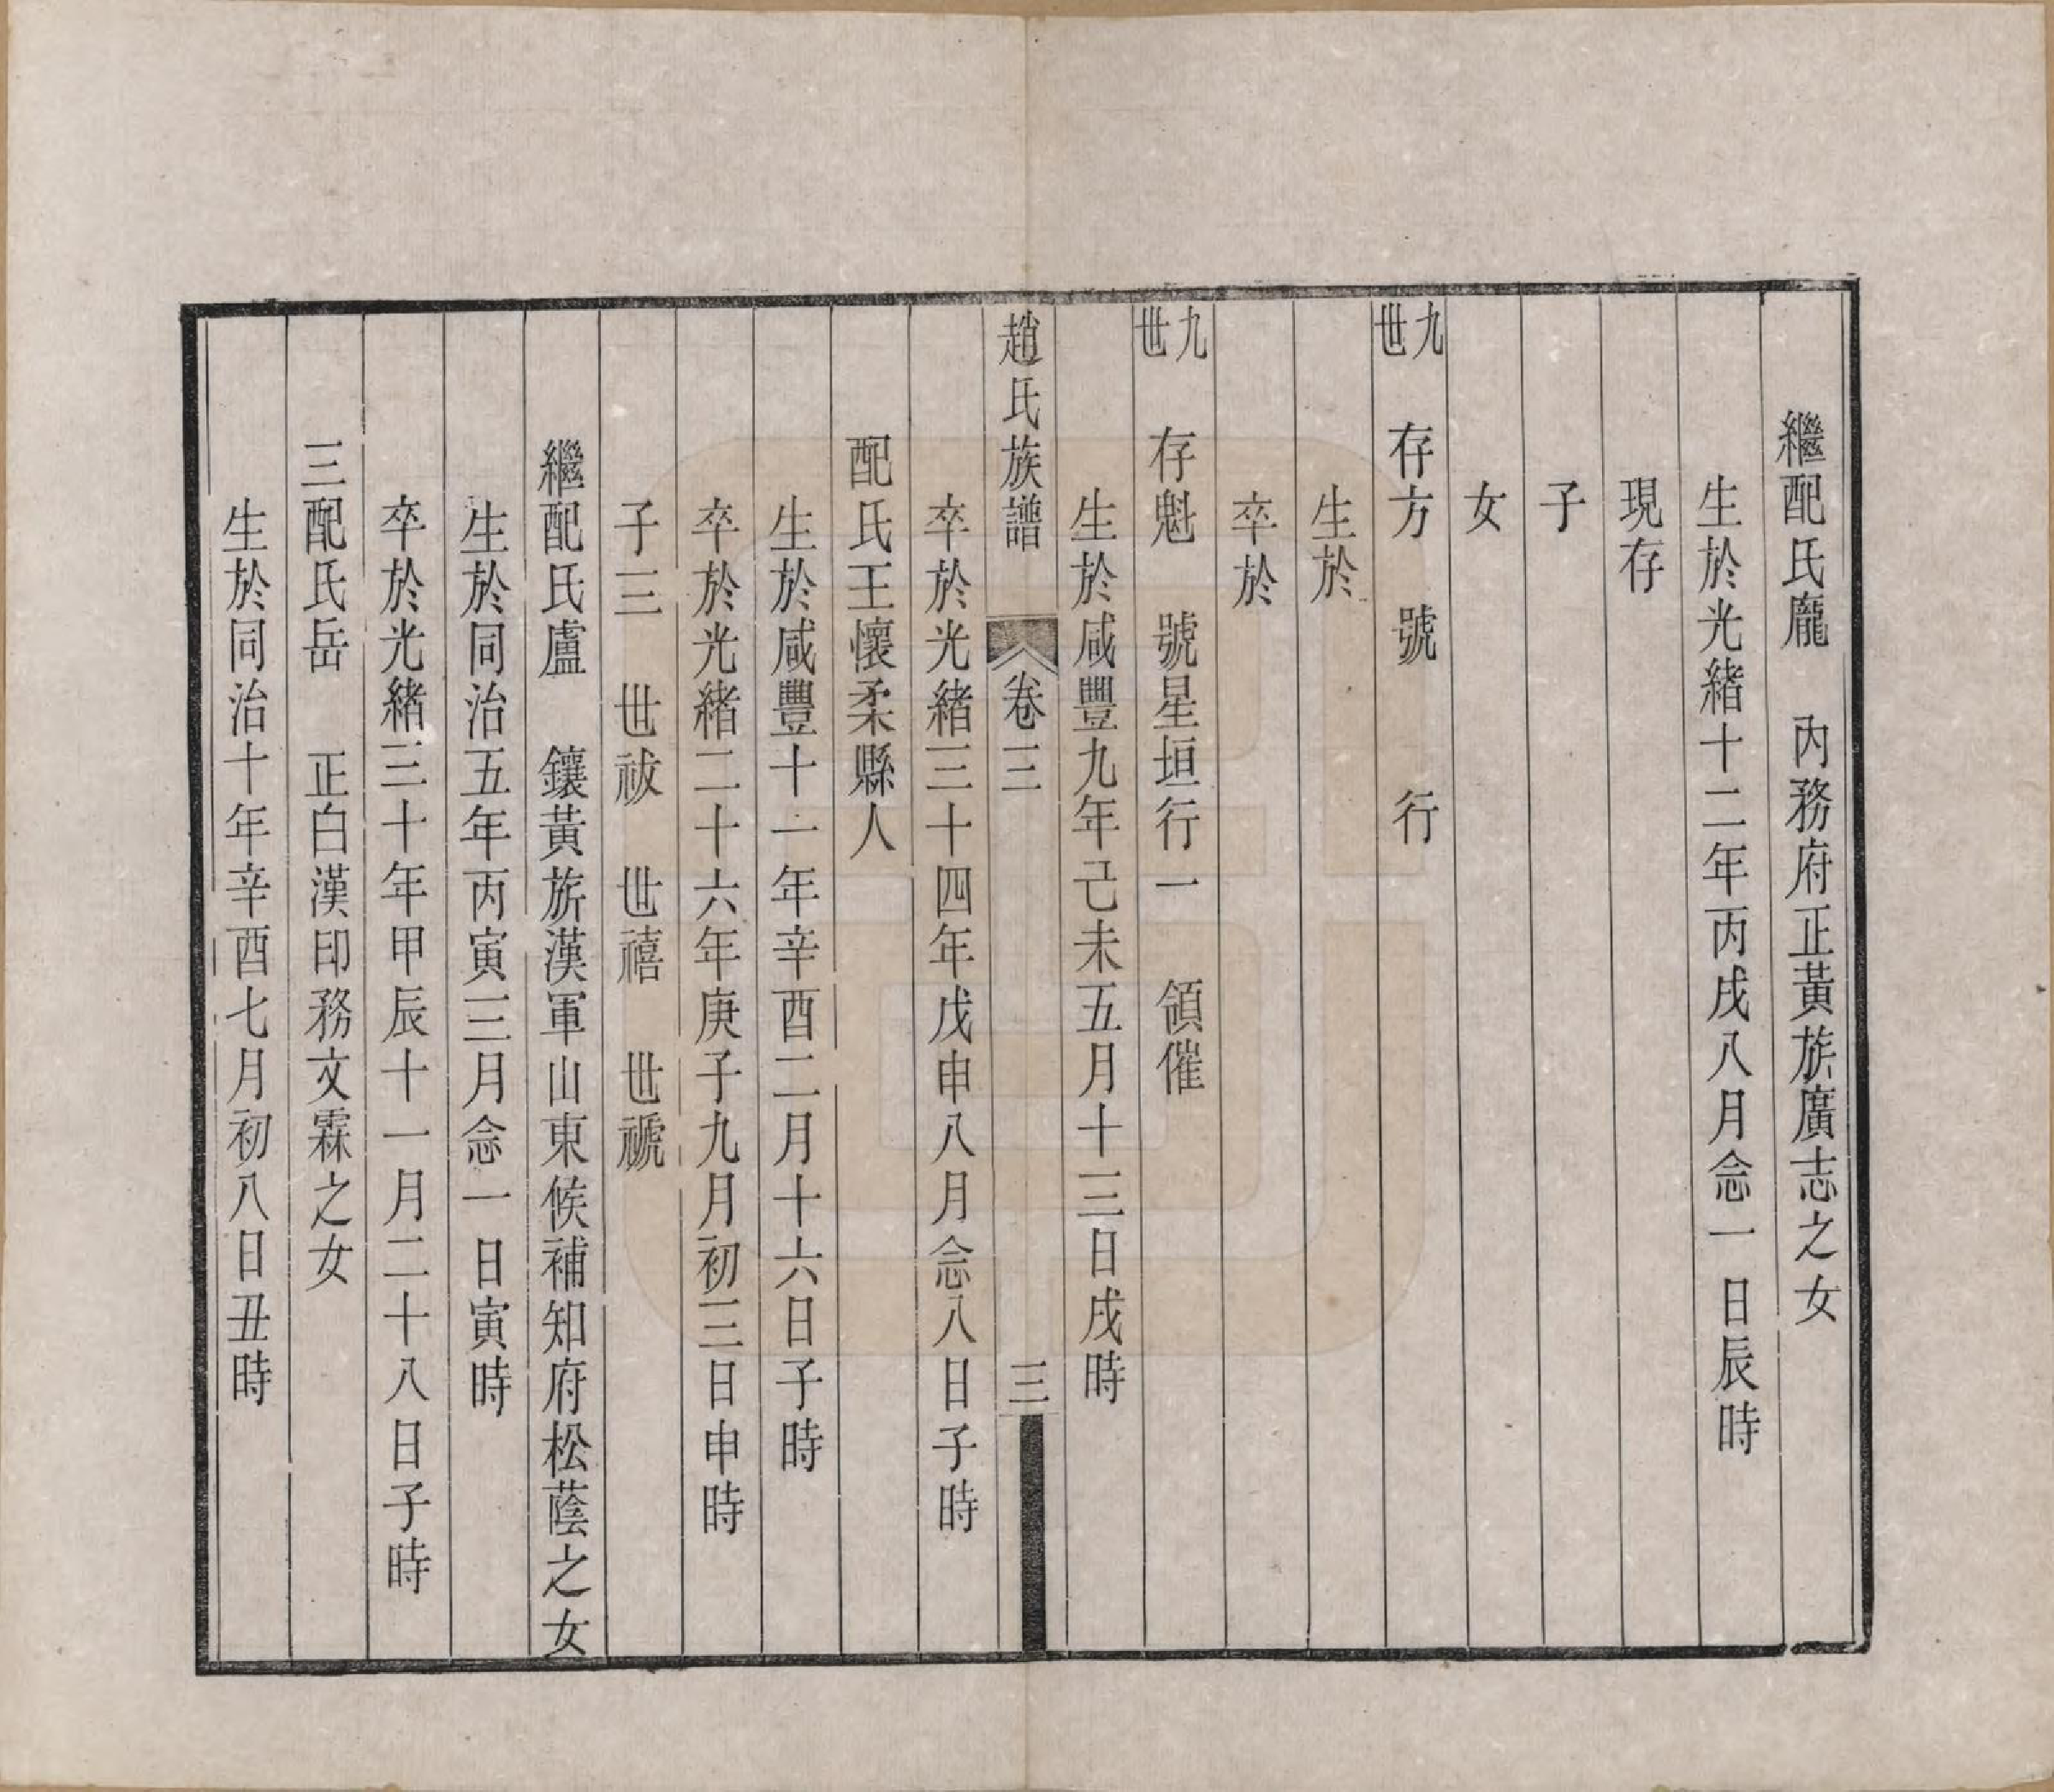 繼配氏龐　內務府正黃旗廣志之女
生於光緒十二年丙戌八月念一日辰時
現存
子
女
九世　存方　號　行
生於
卒於
九世　存魁　號星垣行一　領催
生於咸豐九年己未五月十三日戌時
趙氏族譜　卷三　三
卒於光緒三十四年戊申八月念八日子時
配氏王懷柔縣人
生於咸豐十一年辛酉二月十六日子時
卒於光緒二十六年庚子九月初三日申時
子三　世祓　世禧　世禠
繼配氏盧　鑲黃旂漢軍山東候補知府松蔭之女
生於同治五年丙寅三月念一日寅時
卒於光緒三十年甲辰十一月二十八日子時
三配氏岳　正白漢印務文霖之女
生於同治十年辛酉七月初八日丑時